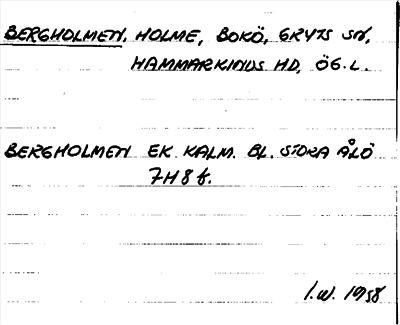 BERGHOLMEN, HOLME, BOKÖ, GRYTS SN,
HAMMARKINDS HD, ÖG.L.
BERGHOLMEN EK. KALM. BL. STORA ÅLÖ
7H8f.
I.W. 1958